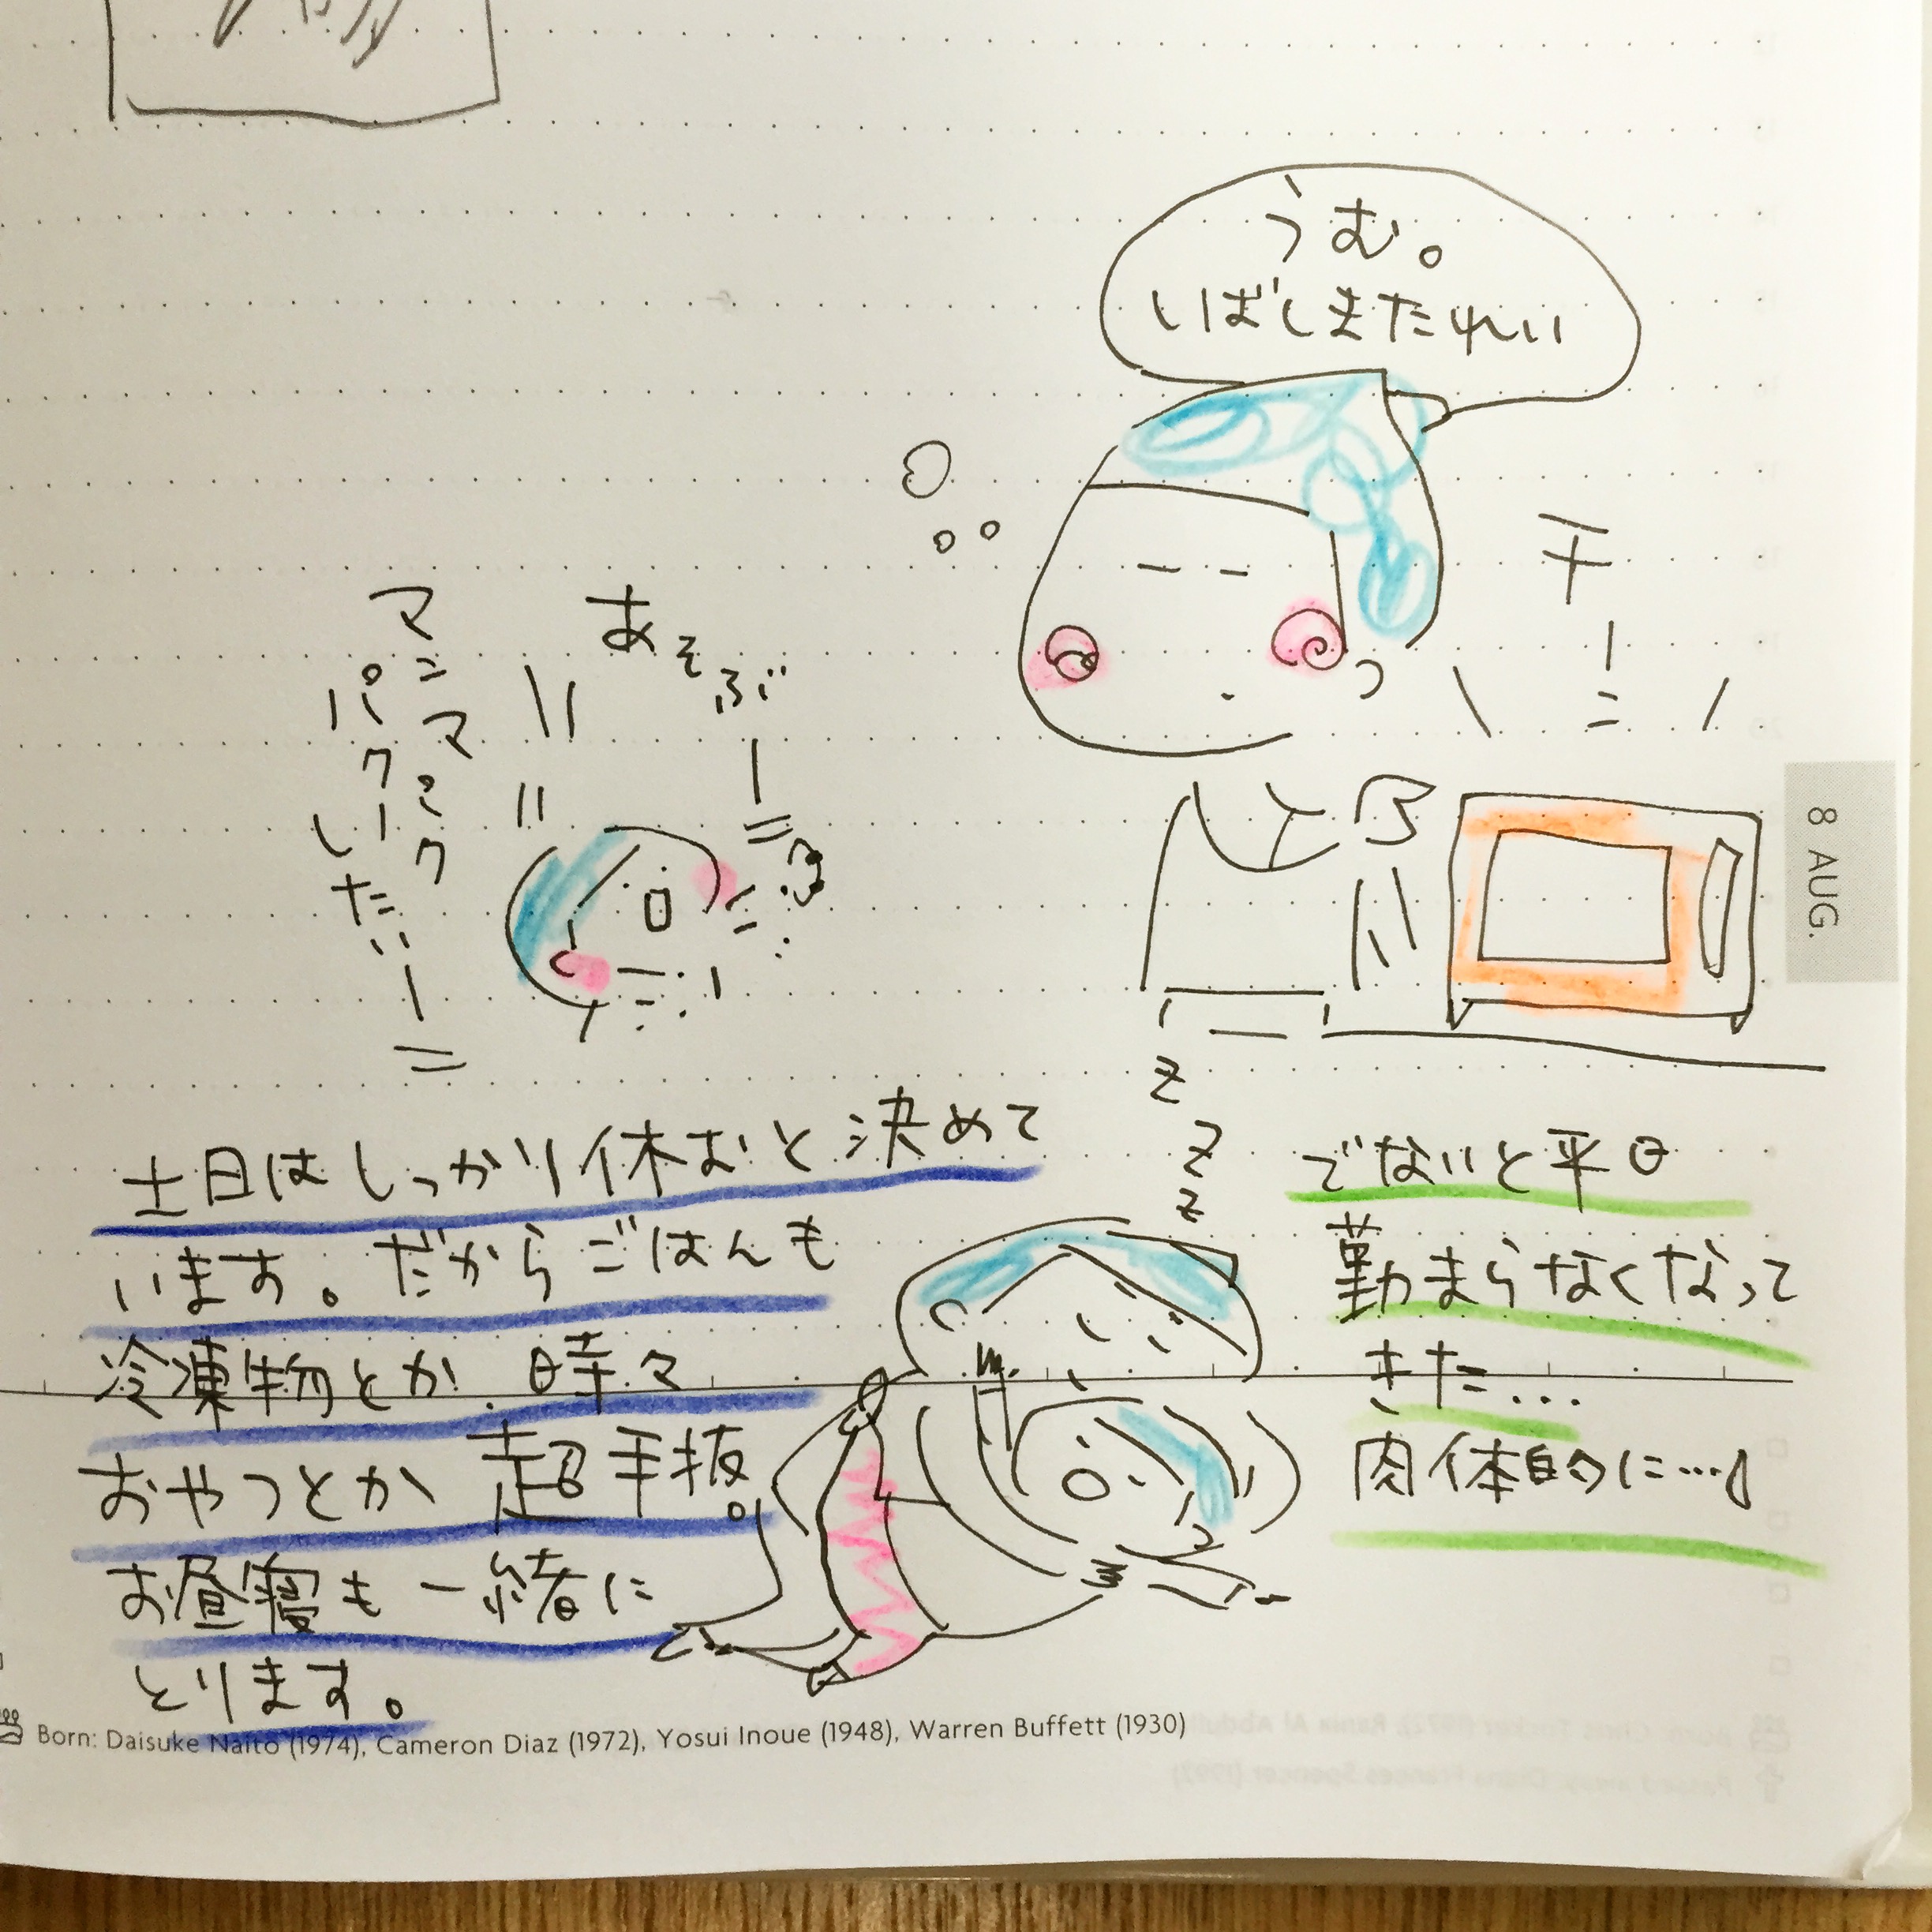 うむ。
いばしまたれい
チーン
あそぶー
マンマ パクパクしたいー
8 AUG.
土日はしっかり休むと決めて
います。だからごはんも
冷凍物とか、時々
おやつとか超手抜。
お昼寝も一緒に
とります。
z
z
z
でないと平日
勤まらなくなって
きた…
肉体的に…
Born: Daisuke Naito (1974), Cameron Diaz (1972), Yosui Inoue (1948), Warren Buffett (1930)